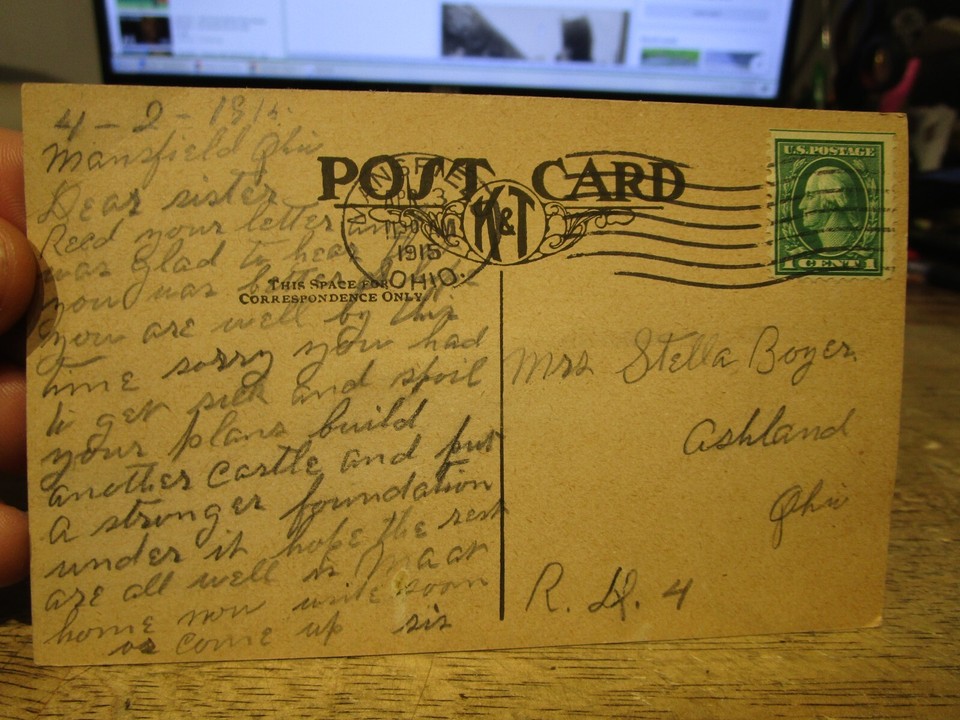 4 - 2 - 1915.
Mansfield Ohio
Dear sister
Recd your letter and
was glad to hear
you was better
you are well by this
time sorry you had
to get sick and spoil
your plans build
another castle and put
a stronger foundation
under it hope the rest
are all well is Ma at
home now write soon
or come up sis
POST CARD
K&T
THIS SPACE FOR
CORRESPONDENCE ONLY
APR 3
1915
OHIO.
U.S. POSTAGE
1 CENT 1
Mrs Stella Boyer.
Ashland
Ohio
R. D. 4